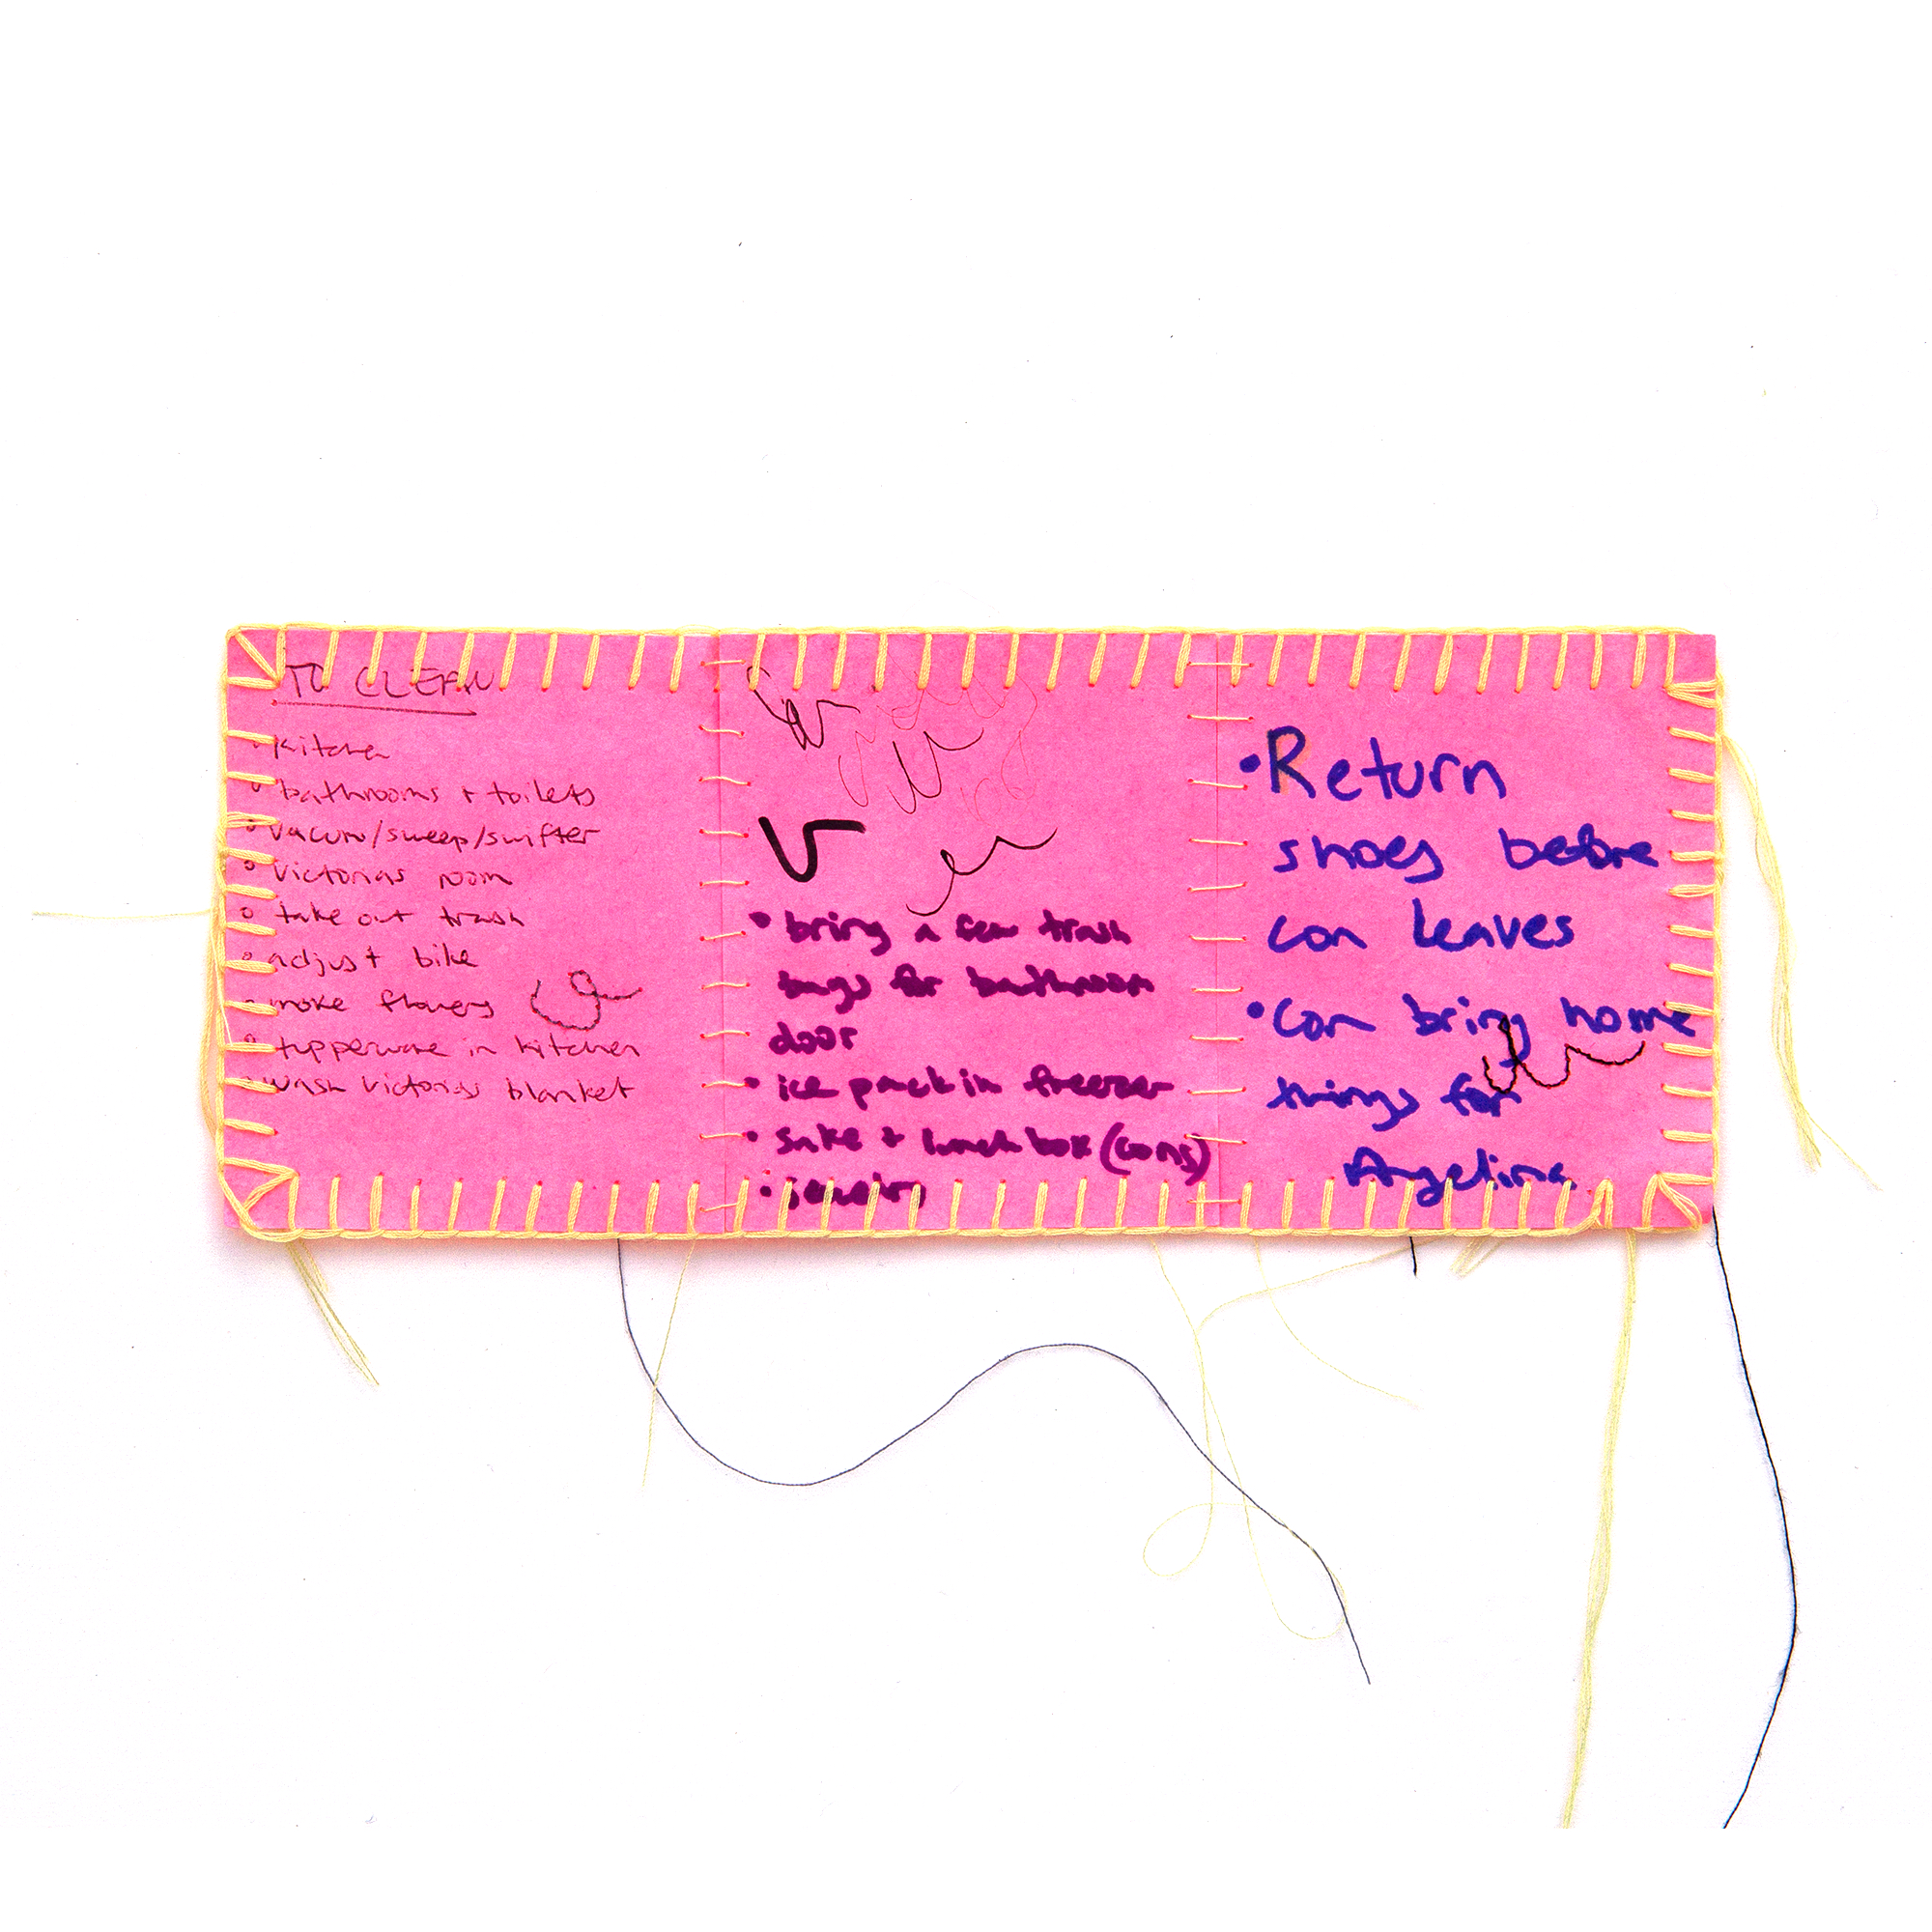 TO CLEAN
kitchen
bathrooms + toilets
vacum/sweep/swifter
victorias room
take out trash
adjust bike
make flowers
tupperware in kitchen
wash victorias blanket
• bring a few trash
bags for bathroom
door
• ice pack in freezer
• sake + lunch box (cons)
• Return
shoes before
con leaves
• Con bring home
things for
Angelina